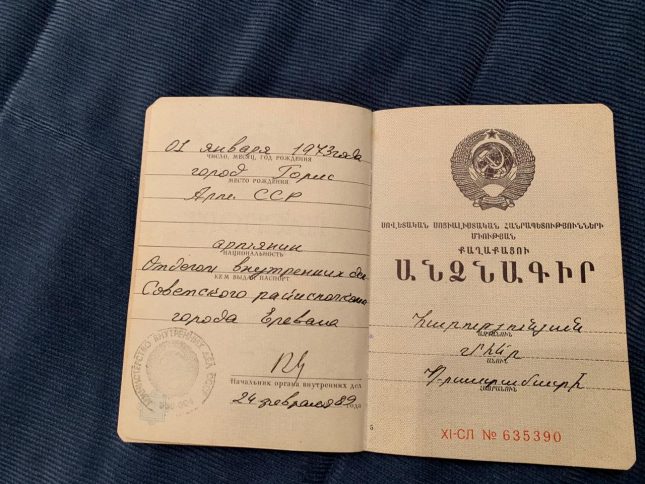 01 января 1973 года
ЧИСЛО, МЕСЯЦ, ГОД РОЖДЕНИЯ
город Горис
МЕСТО РОЖДЕНИЯ
Арм. ССР
армянин
НАЦИОНАЛЬНОСТЬ
Отделом внутренних дел
КЕМ ВЫДАН ПАСПОРТ
Советского райисполкома
города Еревана
Начальник органа внутренних дел
24 февраля 89 года
МИНИСТЕРСТВО ВНУТРЕННИХ ДЕЛ
ՍՈՎԵՏԱԿԱՆ ՍՈՑԻԱԼԻՍՏԱԿԱՆ ՀԱՆՐԱՊԵՏՈՒԹՅՈՒՆՆԵՐԻ
ՄԻՈՒԹՅԱՆ
ՔԱՂԱՔԱՑՈՒ
ԱՆՁՆԱԳԻՐ
Հարությունյան
ԱԶԳԱՆՈՒՆ
Մհեր
ԱՆՈՒՆ
ՀԱՅՐԱՆՈՒՆ
5
XI-СЛ № 635390